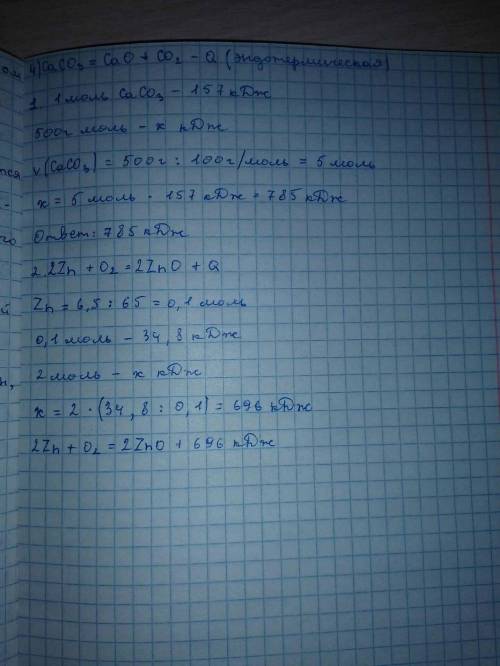 4) CaCO₃ = CaO + CO₂ - Q (эндотермическая)
1. 1 моль CaCO₃ - 157 кДж
500г моль - x кДж
ν(CaCO₃) = 500г : 100г/моль = 5 моль
x = 5 моль · 157 кДж = 785 кДж
Ответ: 785 кДж
2. 2Zn + O₂ = 2ZnO + Q
Zn = 6,5 : 65 = 0,1 моль
0,1 моль - 34,8 кДж
2 моль - x кДж
x = 2 · (34,8 : 0,1) = 696 кДж
2Zn + O₂ = 2ZnO + 696 кДж